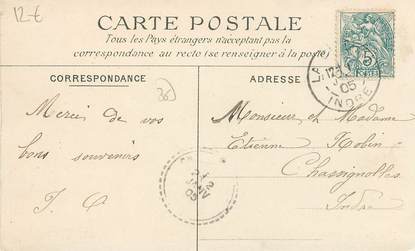 12-€
CARTE POSTALE
Tous les Pays étrangers n'acceptant pas la
correspondance au recto (se renseigner à la poste)
CORRESPONDANCE
ADRESSE
Merci de vos
bons souvenirs
J. C
Monsieur et Madame
Etienne Robin
Chassignolles
Indre
5
LA
05
INDRE
05